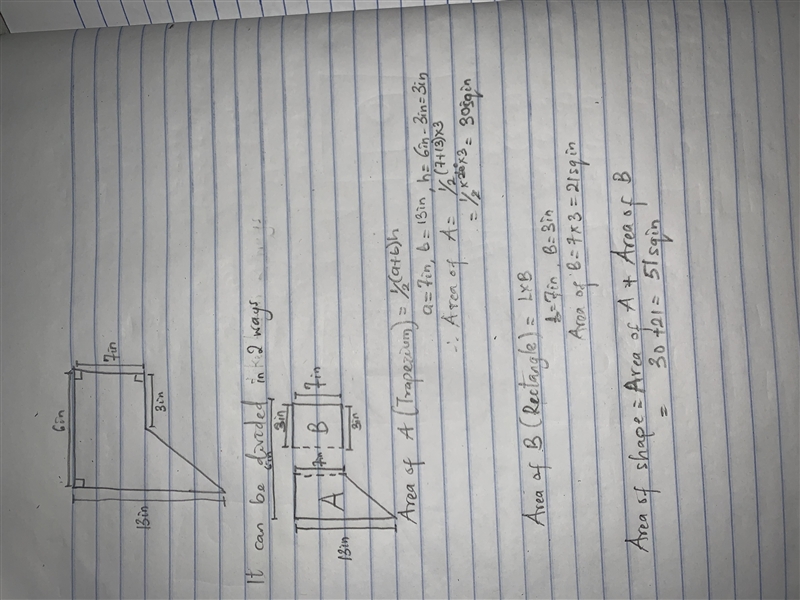 6in
7in
3in
13in
It can be divided in 2 ways
6in
3in
7in
7in
A
B
3in
13in
Area of A (Trapezium) = ½(a+b)h
a=7in, b=13in, h=6in-3in=3in
∴ Area of A= ½(7+13)×3
= ½×20×3 = 30sqin
Area of B (Rectangle) = L×B
L=7in, B=3in
Area of B=7×3=21sqin
Area of shape = Area of A + Area of B
= 30+21= 51sqin